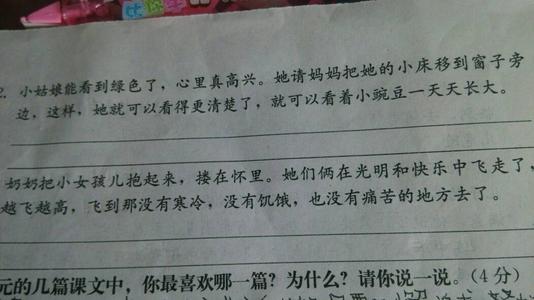 2. 小姑娘能看到绿色了，心里真高兴。她请妈妈把她的小床移到窗子旁
边，这样，她就可以看得更清楚了，就可以看着小豌豆一天天长大。
奶奶把小女孩儿抱起来，搂在怀里。她们俩在光明和快乐中飞走了，
越飞越高，飞到那没有寒冷，没有饥饿，也没有痛苦的地方去了。
元的几篇课文中，你最喜欢哪一篇？为什么？请你说一说。（4分）